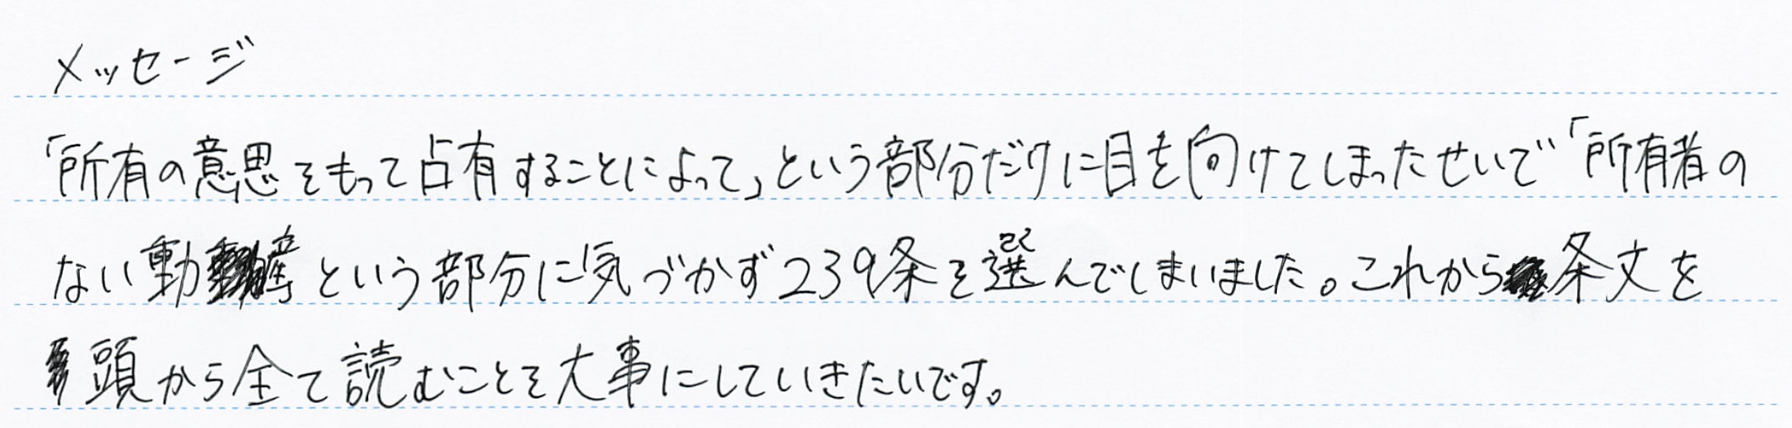 メッセージ
「所有の意思をもって占有することによって」という部分だけに目を向けてしまったせいで「所有者の
ない動産という部分に気づかず239条を選んでしまいました。これから条文を
頭から全て読むことを大事にしていきたいです。